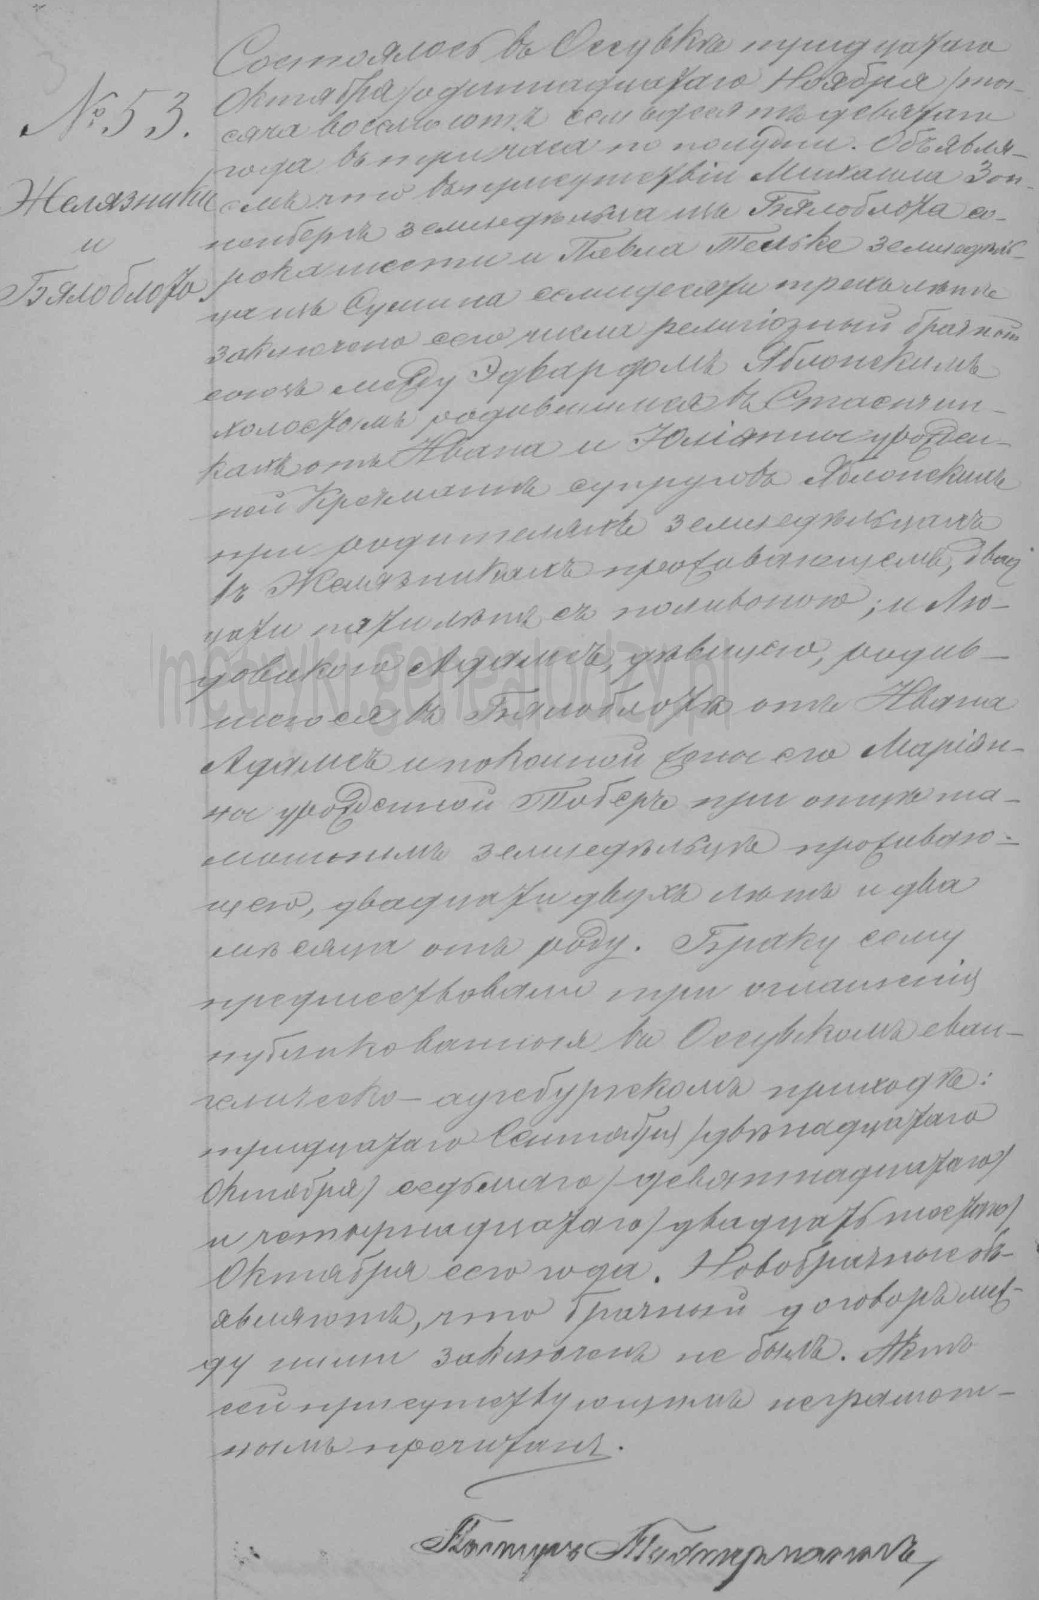 № 53.
Желязники
и
Бялоблото
Состоялось въ Оссувкѣ тридцатаго
Октября /одиннадцатаго Ноября/ ты-
сяча восемьсотъ семьдесятъ девятаго
года въ три часа по полудни. Объявля-
емъ что въ присутствіи Михаила Зон-
ненбергъ земледѣльца изъ Бялоблота со-
рока шести и Павла Тельке земледѣль-
ца изъ Сумина семидесяти трехъ лѣтъ
заключено сего числа религіозный брачный
союзъ между Эдвардомъ Яблонскимъ
холостымъ родившимся въ Стасичин-
кахъ отъ Ивана и Юліанны урожден-
ной Кречманъ супруговъ Яблонскихъ
при родителяхъ земледѣльцахъ
въ Желязникахъ проживающемъ, двад-
цати пяти лѣтъ съ половиною; и Лю-
довикою Адамсъ, дѣвицею, родив-
шеюся въ Бялоблотѣ отъ Ивана
Адамсъ и покойной жены его Маріан-
ны урожденной Тоберъ при отцѣ та-
мошнимъ земледѣльцѣ проживаю-
щею, двадцати двухъ лѣтъ и два
мѣсяца отъ роду. Браку сему
предшествовали три оглашенія
публикованныя въ Оссувскомъ еван-
гелическо-аугсбургскомъ приходѣ:
тридцатаго Сентября /двѣнадцатаго
Октября/ седьмаго /девятнадцатаго/
и четырнадцатаго /двадцать шестаго/
Октября сего года. Новобрачные объ-
являютъ, что брачный договоръ меж-
ду ними заключенъ не былъ. Актъ
сей присутствующимъ неграмот-
нымъ прочитанъ.
Пасторъ
metryki.genealodzy.pl